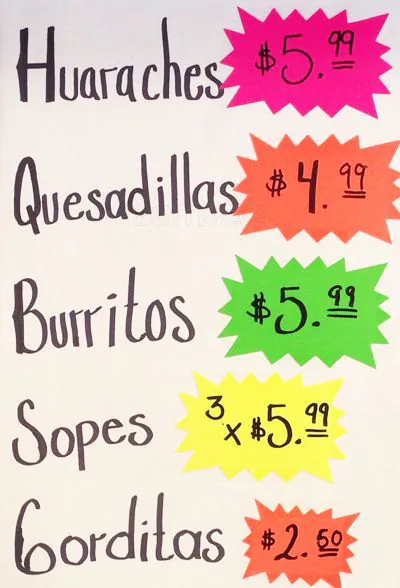 Huaraches $5.99
Quesadillas $4.99
Burritos $5.99
Sopes 3 x $5.99
Gorditas $2.50